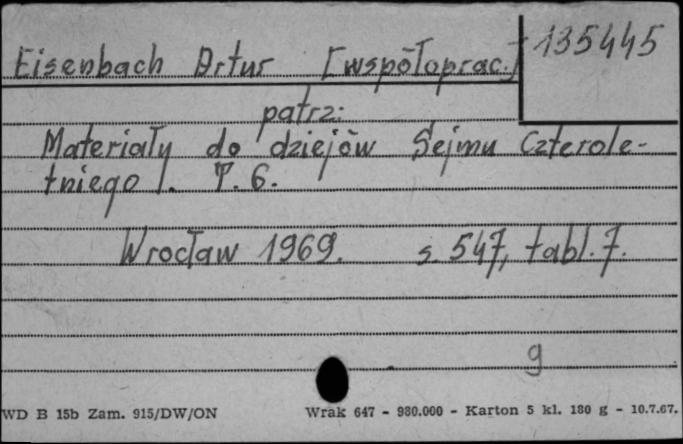 135445
Eisenbach Artur [współoprac.]
patrz:
Materiały do dziejów Sejmu Czterole-
tniego. T. 6.
Wrocław 1969. s. 547, tabl. 7.
g
WD B 15b Zam. 915/DW/ON Wrak 647 - 980.000 - Karton 5 kl. 180 g - 10.7.67.